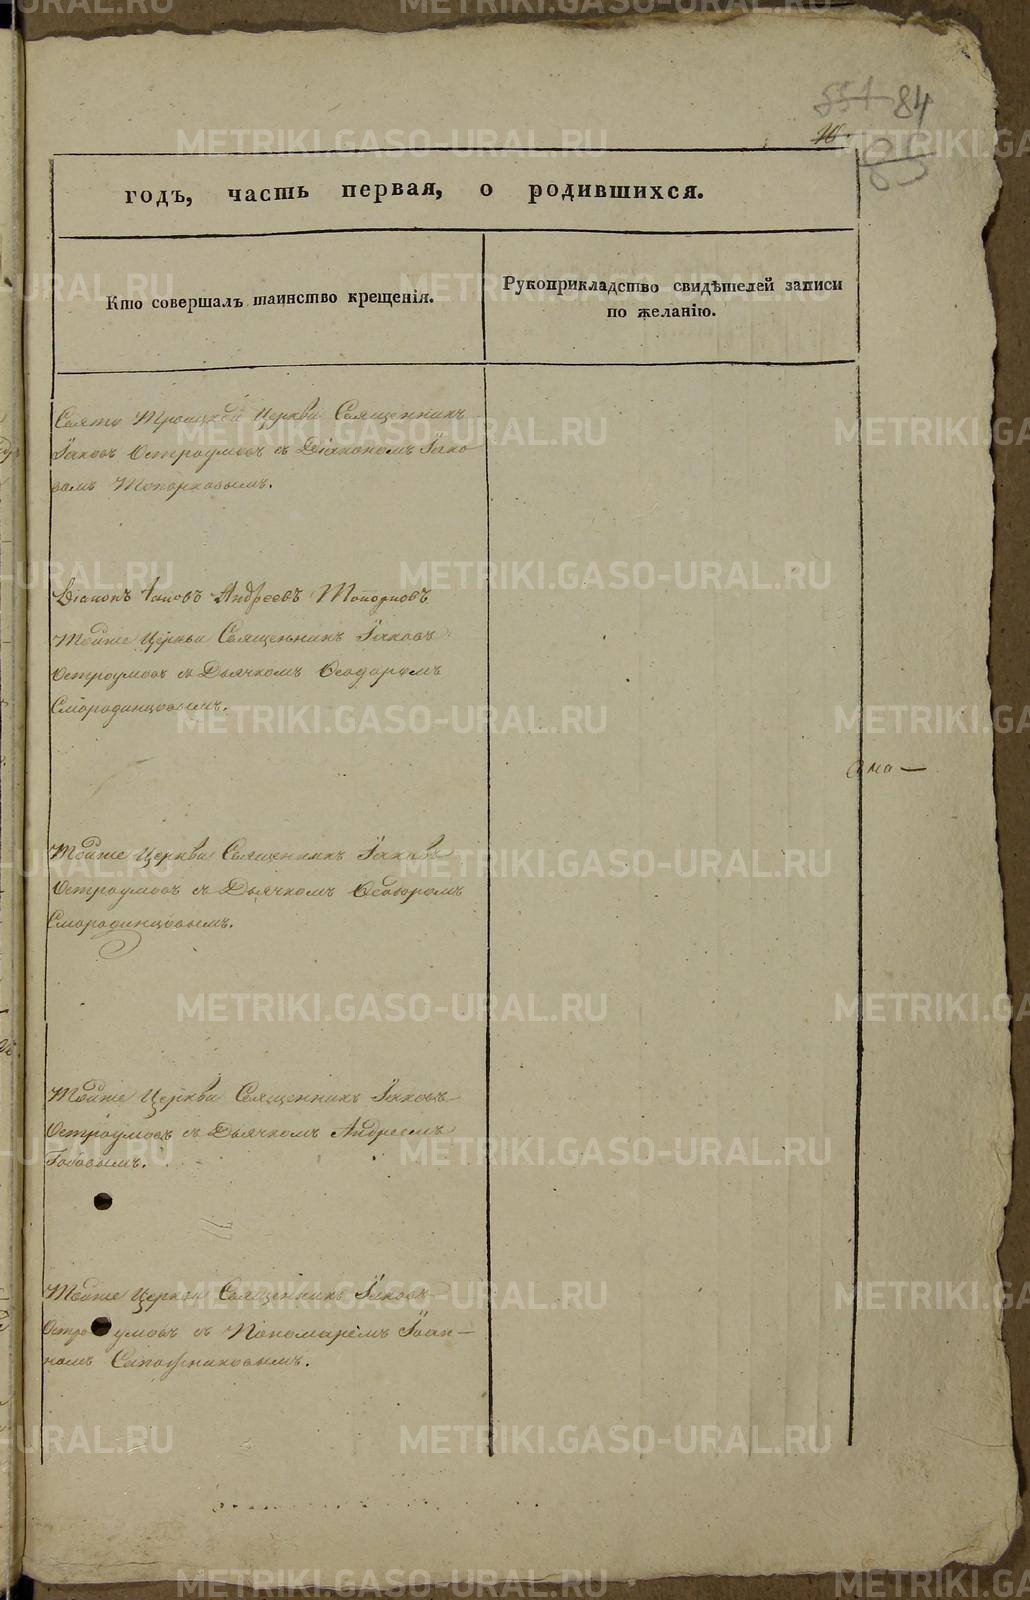 551 84
10.
85
годъ, часть первая, о родившихся.
Кто совершалъ таинство крещенія.
Рукоприкладство свидѣтелей записи
по желанію.
Свято Троицкой Церкви Священникъ
Іаковъ Остроумовъ съ Діакономъ Іако
вомъ Топорковымъ.
Діаконъ Іаковъ Андреевъ Топорковъ
Тойже Церкви Священникъ Іаковъ
Остроумовъ съ Дьячкомъ Ѳеодоромъ
Смородинцовымъ.
Тойже Церкви Священникъ Іаковъ
Остроумовъ съ Дьячкомъ Ѳеодоромъ
Смородинцовымъ.
Тойже Церкви Священникъ Іаковъ
Остроумовъ съ Дьячкомъ Андреемъ
Тойже Церкви Священникъ Іаковъ
Остроумовъ съ Пономаремъ Іоан-
номъ Сапожниковымъ.
METRIKI.GASO-URAL.RU